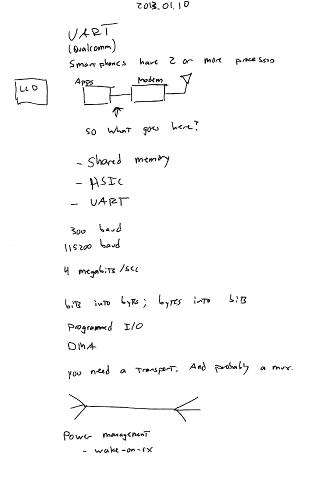 2013.01.10
UART
(Qualcomm)
Smartphones have 2 or more processors
Apps
Modem
LCD
so what goes here?
- Shared memory
- HSIC
- UART
300 baud
115200 baud
4 megabits/sec
bits into bytes; bytes into bits
Programmed I/O
DMA
you need a transport. And probably a mux.
Power management
- wake-on-rx